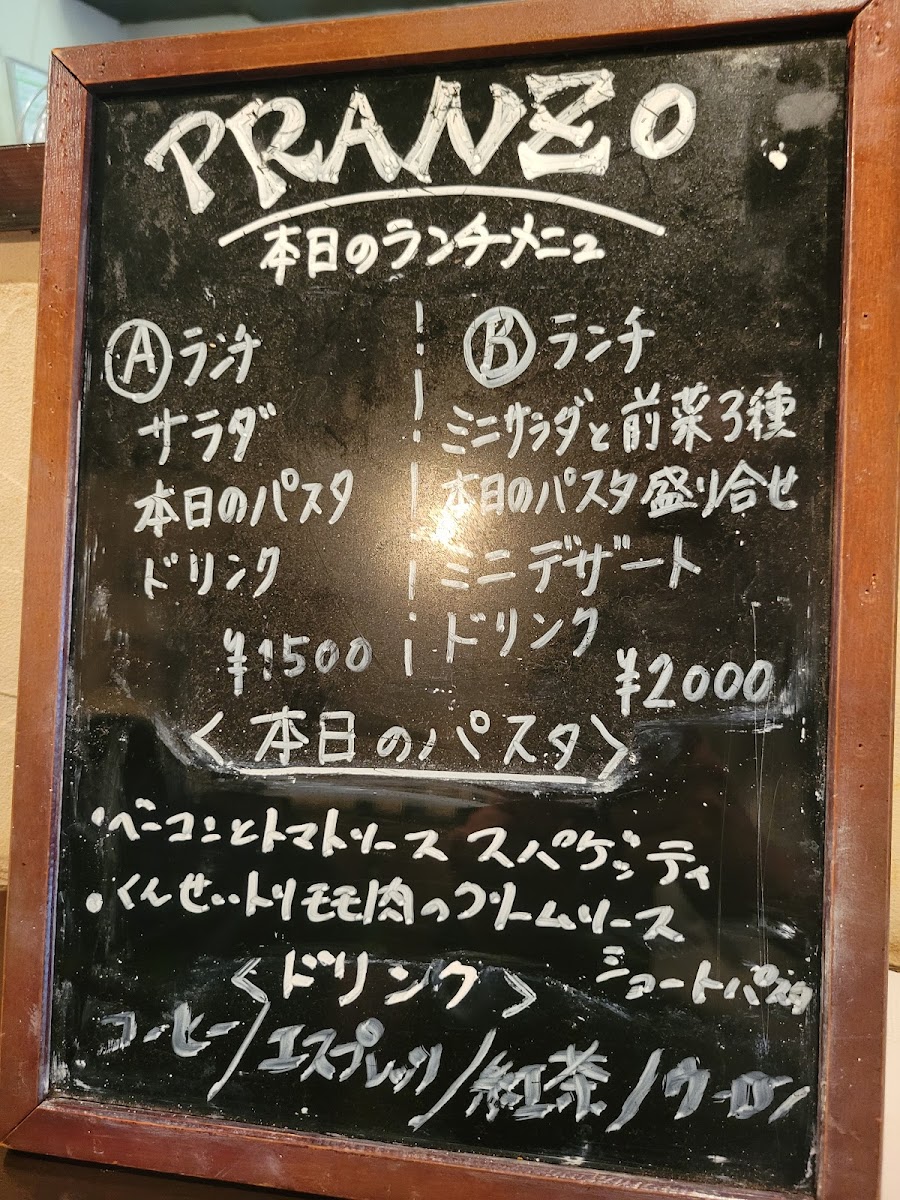 PRANZO
本日のランチメニュ
Ⓐランチ
サラダ
本日のパスタ
ドリンク
¥1500
Ⓑランチ
ミニサラダと前菜3種
本日のパスタ盛り合せ
ミニデザート
ドリンク
¥2000
<本日のパスタ>
・ベーコンとトマトソース スパゲッティ
・くんせいトリモモ肉のクリームソース
ショートパスタ
<ドリンク>
コーヒー/エスプレッソ/紅茶/ウーロン